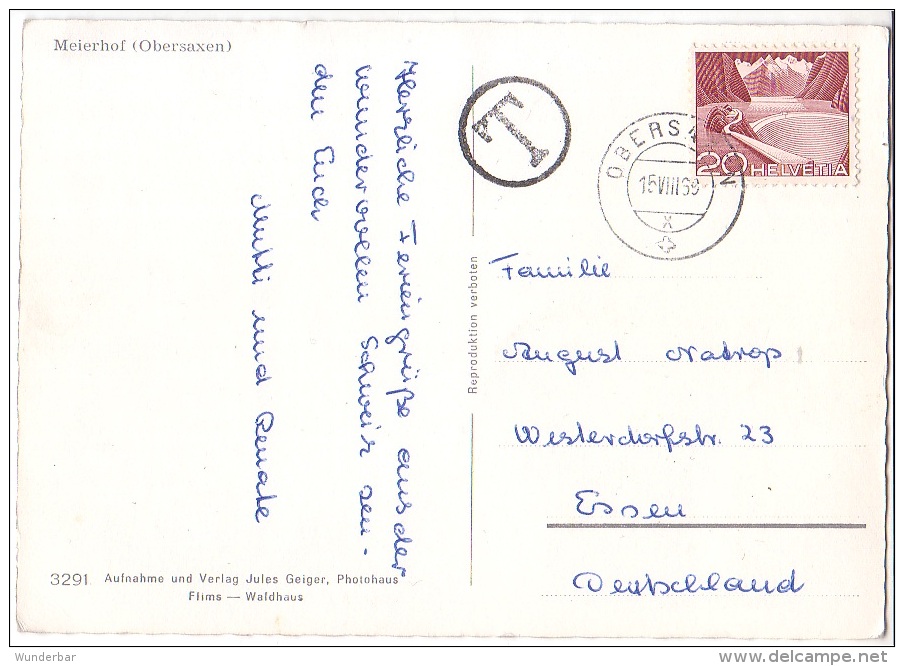 Meierhof (Obersaxen)
Herrliche Feriengrüße aus der
wundervollen Schweiz sen-
den Euch
Mutti und Renate
3291 Aufnahme und Verlag Jules Geiger, Photohaus
Flims — Waldhaus
Reproduktion verboten
T
OBERSAXEN
15 VIII 69
X
20 HELVETIA
Familie
August Natrop
Westerdorfstr. 23
Essen
Deutschland
Wunderbar
www.delcampe.net